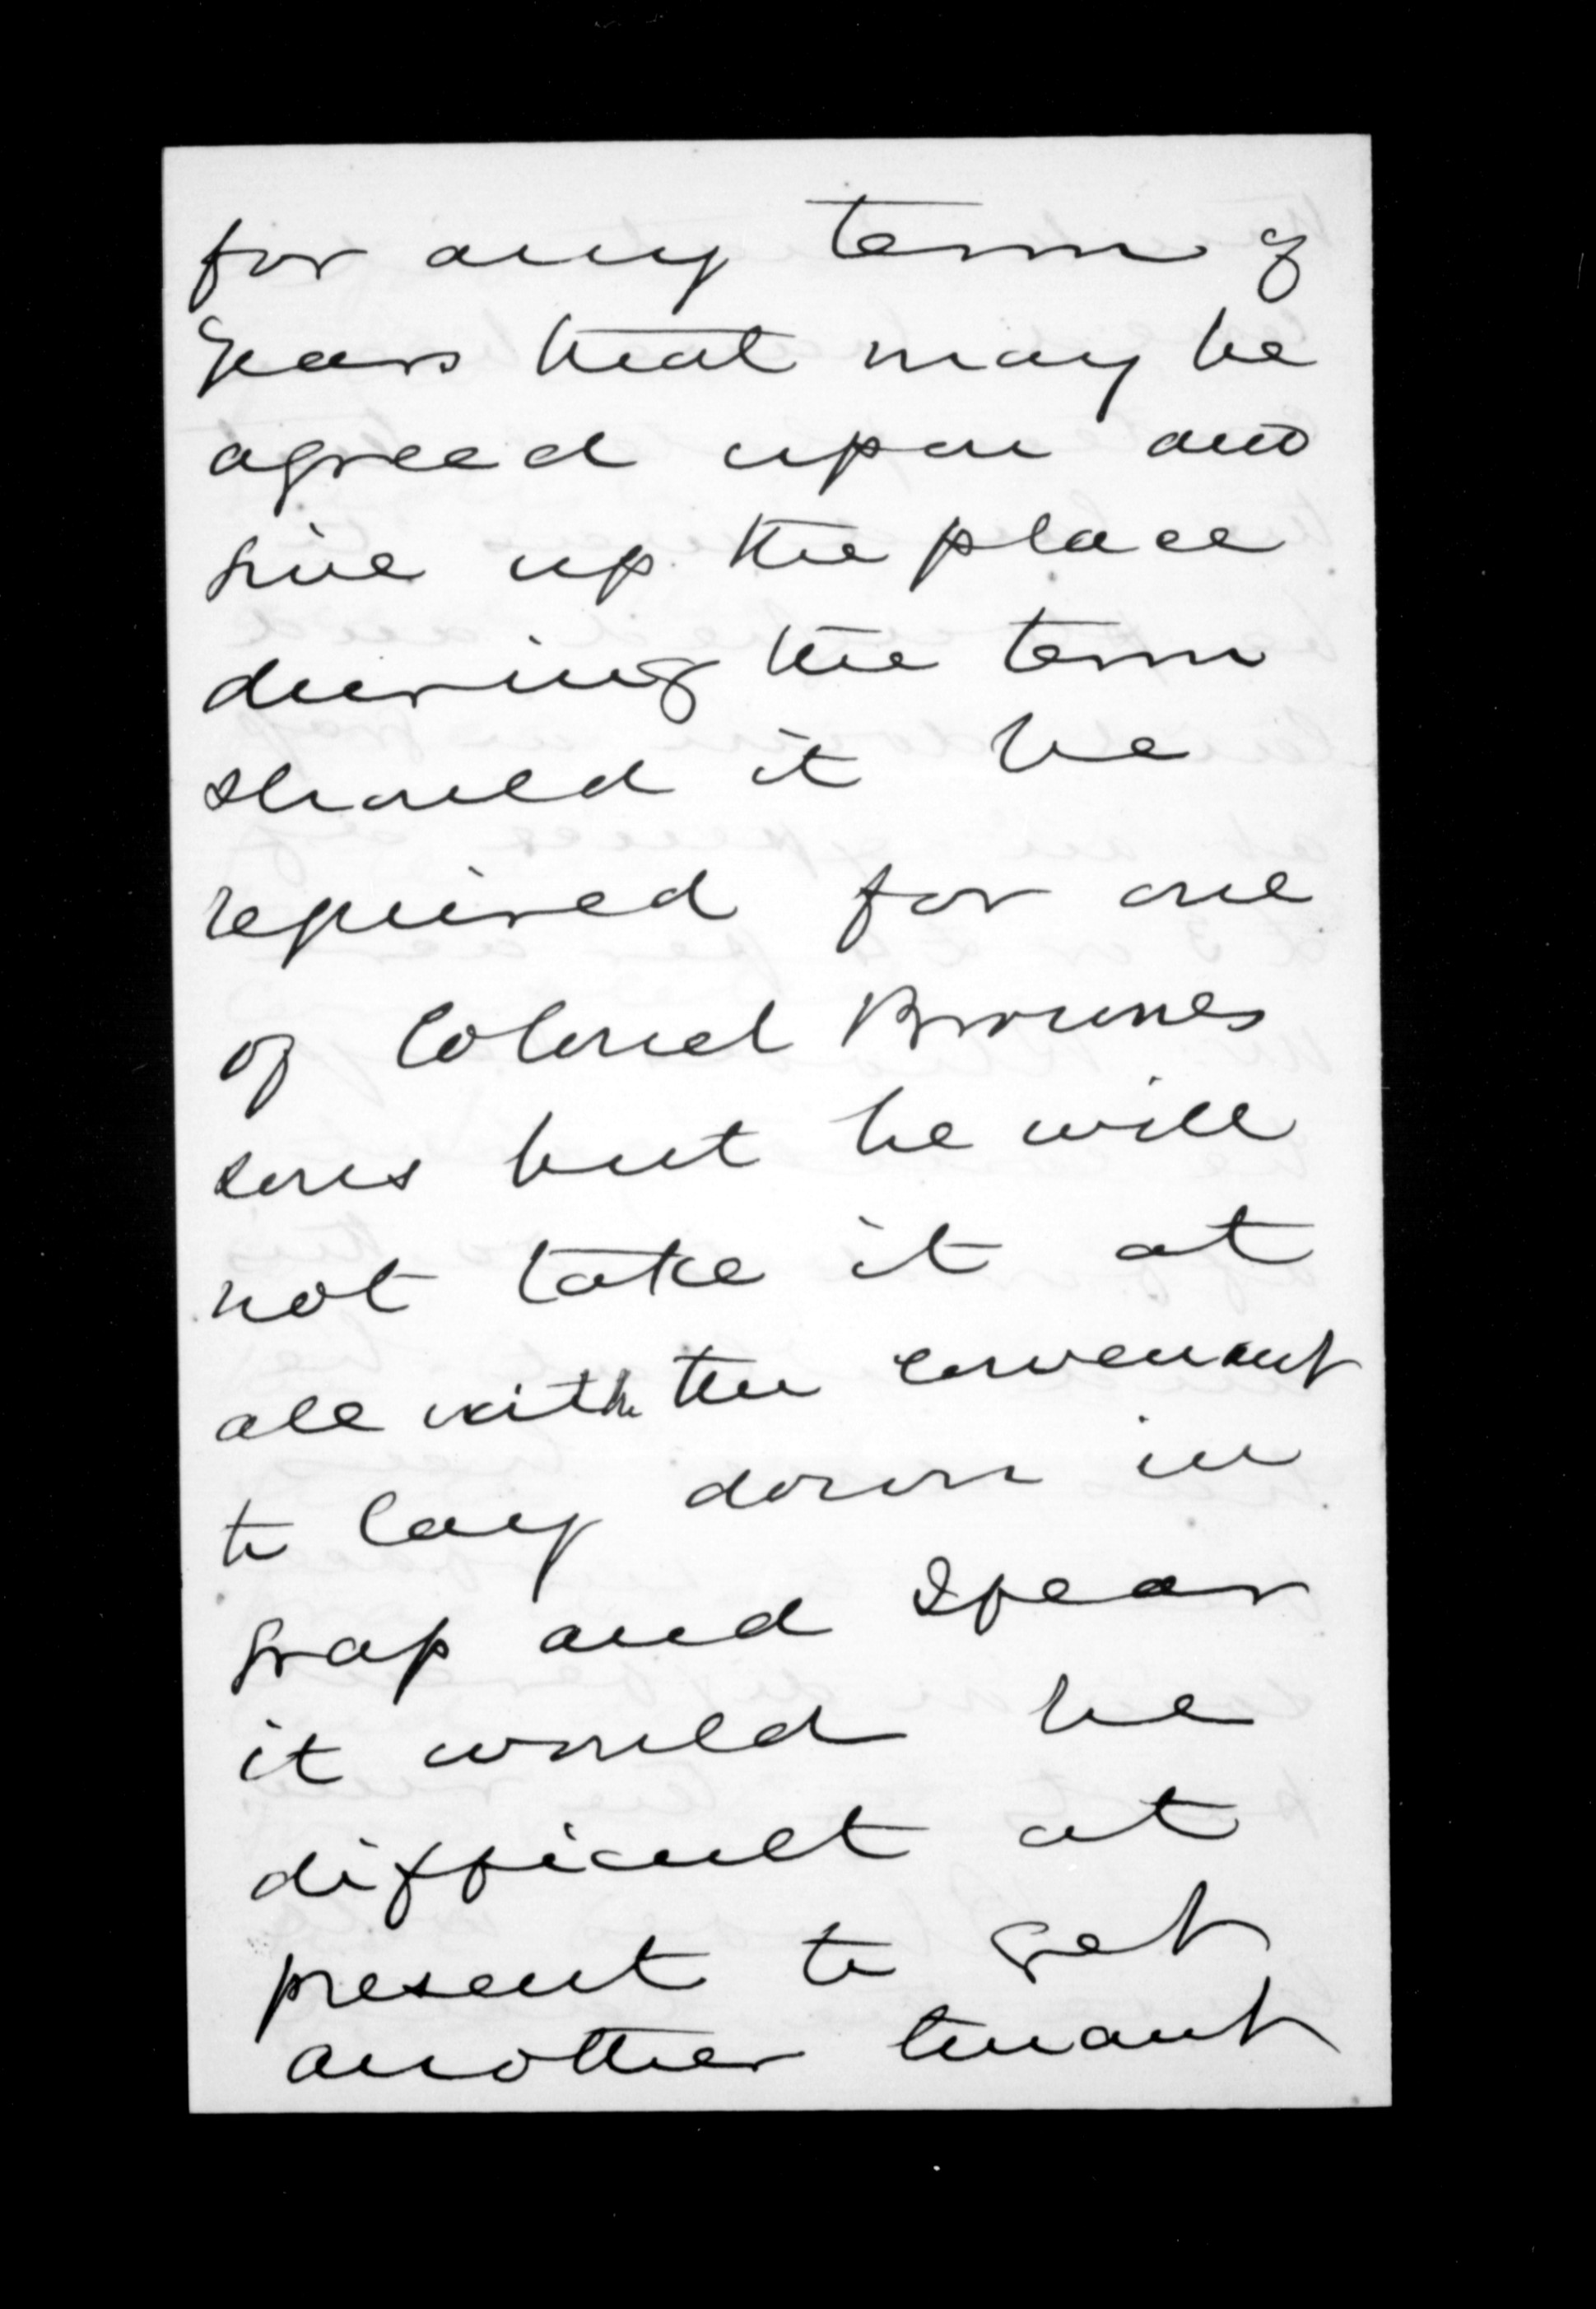 for any term of
years that may be
agreed upon and
give up the place
during the term
should it be
required for one
of Colonel Brownes
sons but he will
not take it at
all with the covenant
to lay down in
grass and I fear
it would be
difficult at
present to get
another tenant